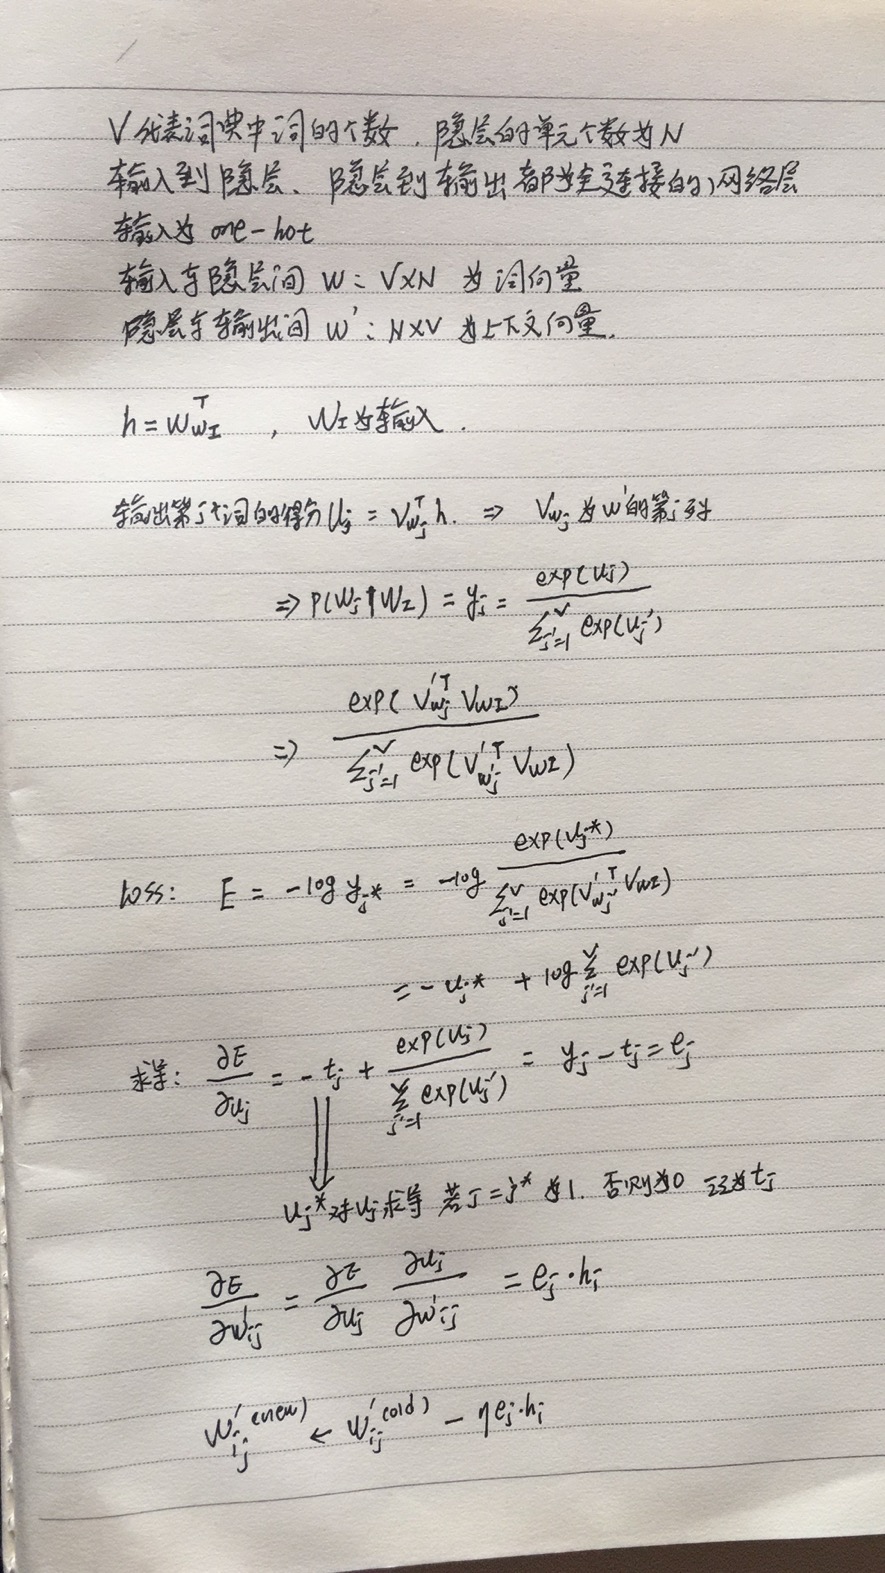 V代表词典中词的个数，隐层的单元个数为N
输入到隐层、隐层到输出都为全连接的网络层
输入为 one-hot
输入与隐层间 W: V×N 为词向量
隐层与输出间 W': N×V 为上下文向量.
h = W_{wI}^T , W_I为输入.
输出第j个词的得分 u_j = V_{wj}^T h. ⇒ V_{wj} 为W'的第j列
⇒ P(W_j|W_I) = y_j = exp(u_j) / Σ_{j'=1}^V exp(u_{j'})
⇒ exp(V'_{wj}^T V_{wI}) / Σ_{j'=1}^V exp(V'_{wj'}^T V_{wI})
loss: E = -log y_{j*} = -log exp(u_{j*}) / Σ_{j'=1}^V exp(V'_{wj'}^T V_{wI})
= -u_{j*} + log Σ_{j'=1}^V exp(u_{j'})
求导: ∂E/∂u_j = -t_j + exp(u_j) / Σ_{j'=1}^V exp(u_{j'}) = y_j - t_j = e_j
u_{j*}对u_j求导 若j=j* 为1. 否则为0 记为t_j
∂E/∂w'_{ij} = ∂E/∂u_j ∂u_j/∂w'_{ij} = e_j·h_i
w'_{ij}^{(new)} ← w'_{ij}^{(old)} - ηe_j·h_i